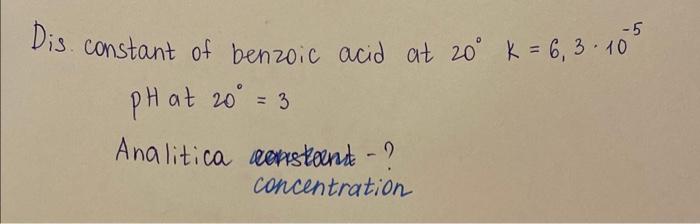 Dis. constant of benzoic acid at 20° K = 6,3 · 10⁻⁵
pH at 20° = 3
Analitica constant - ?
concentration